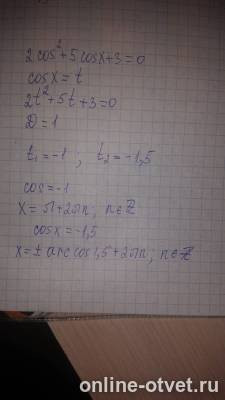 2cos²+5cosx+3=0
cosx=t
2t²+5t+3=0
D=1
t₁=-1 ; t₂=-1,5
cos=-1
x=π+2πn; n∈Z
cosx=-1,5
x=± arccos1,5+2πn; n∈Z
online-otvet.ru